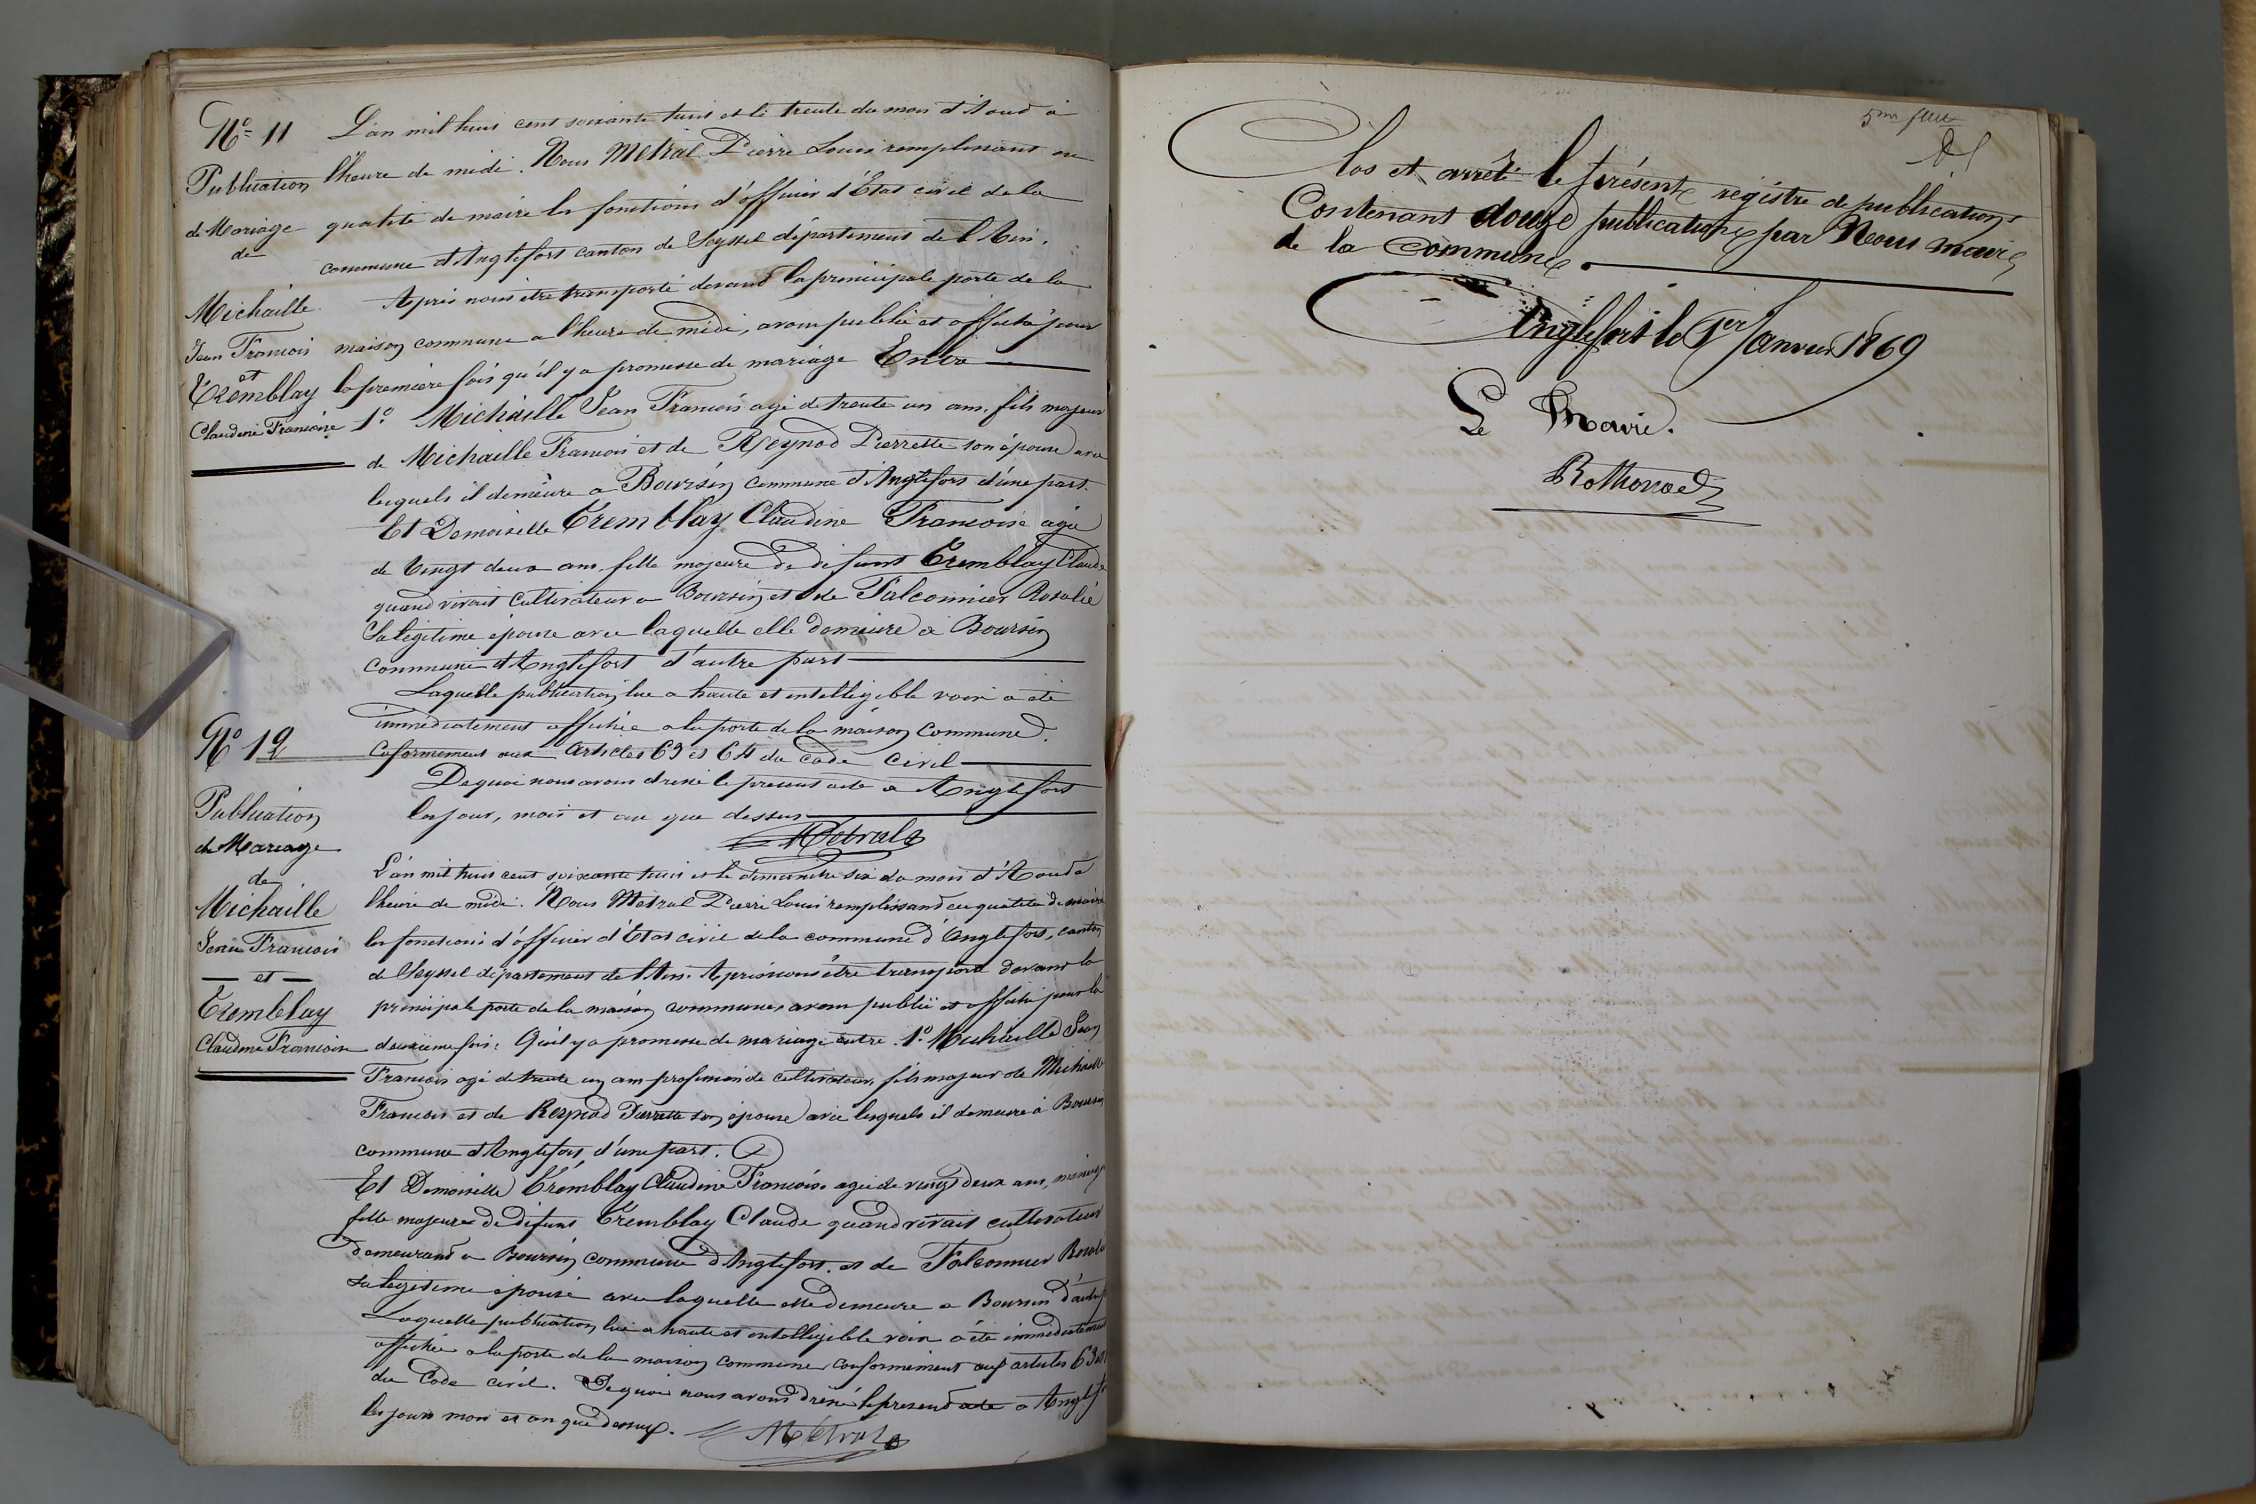 Nº 11
Publication
de Mariage
de
Michaille
Jean Francois
et
Tremblay
Claudine Francoise
L'an mil huit cent soixante huit et le trente du mois d'Aoud à
l'heure de midi. Nous Métral Pierre Louis remplissant en
qualité de maire les fonctions d'officier d'État civil de la
commune d'Anglefort canton de Seyssel département de l'Ain.
Après nous être transporté devant la principale porte de la
maison commune a l'heure de midi, avons publié et affiché pour
la première fois qu'il y a promesse de mariage Entre
1º Michaille Jean Francois agé de trente un ans, fils majeur
de Michaille Francois et de Reynod Pierrette son épouse avec
lesquels il demeure a Boursin commune d'Anglefort d'une part.
Et Demoiselle Tremblay Claudine Francoise agée
de vingt deux ans, fille majeure de défunt Tremblay Claude
quand vivait cultivateur a Boursin et de Falconnier Rosalie
Sa légitime épouse avec laquelle elle demeure à Boursin
commune d'Anglefort d'autre part
Laquelle publication lue a haute et intelligible voix a été
immédiatement affichée a la porte de la maison commune.
Coformement aux articles 63 et 64 du code civil
De quoi nous avons dressé le present acte a Anglefort
les jour, mois et an que dessus
Métral
Nº 12
Publication
de Mariage
de
Michaille
Jean Francois
et
Tremblay
Claudine Francoise
L'an mil huit cent soixante huit et le dimanche six du mois d'Aoud a
l'heure de midi. Nous Métral Pierre Louis remplissand en qualité de maire
les fonctions d'officier d'État civil de la commune d'Anglefort, canton
de Seyssel département de l'Ain. Après nous être transporté devant la
principale porte de la maison commune, avons publié et affiché pour la
deuxieme fois: Qu'il y a promesse de mariage entre 1º Michaille Jean
Francois agé de trente un ans profession de cultivateur, fils majeur de Michaille
Francois et de Reynod Pierrette son épouse avec lesquels il demeure à Boursin
commune d'Anglefort d'une part.
Et Demoiselle Tremblay Claudine Francoise agée de vingt deux ans,
fille majeure de défunt Tremblay Claude quand vivait cultivateur
demeurand a Boursin commune d'Anglefort. et de Falconnier Rosalie
sa legitime épouse avec laquelle elle demeure a Boursin d'autre
Laquelle publication lue a haute et intelligible voix a été immédiatement
affichée a la porte de la maison commune conformément aux articles 63
du Code civil. De quoi nous avons dressé le presend acte a Anglefort
les jours mois et an que dessus.
Métral
5me
Clos et arrêté le présent registre de publications
Contenant douze publications par Nous maire
de la commune.
Anglefort le 1er Janvier 1869
Le Maire.
Rothonod